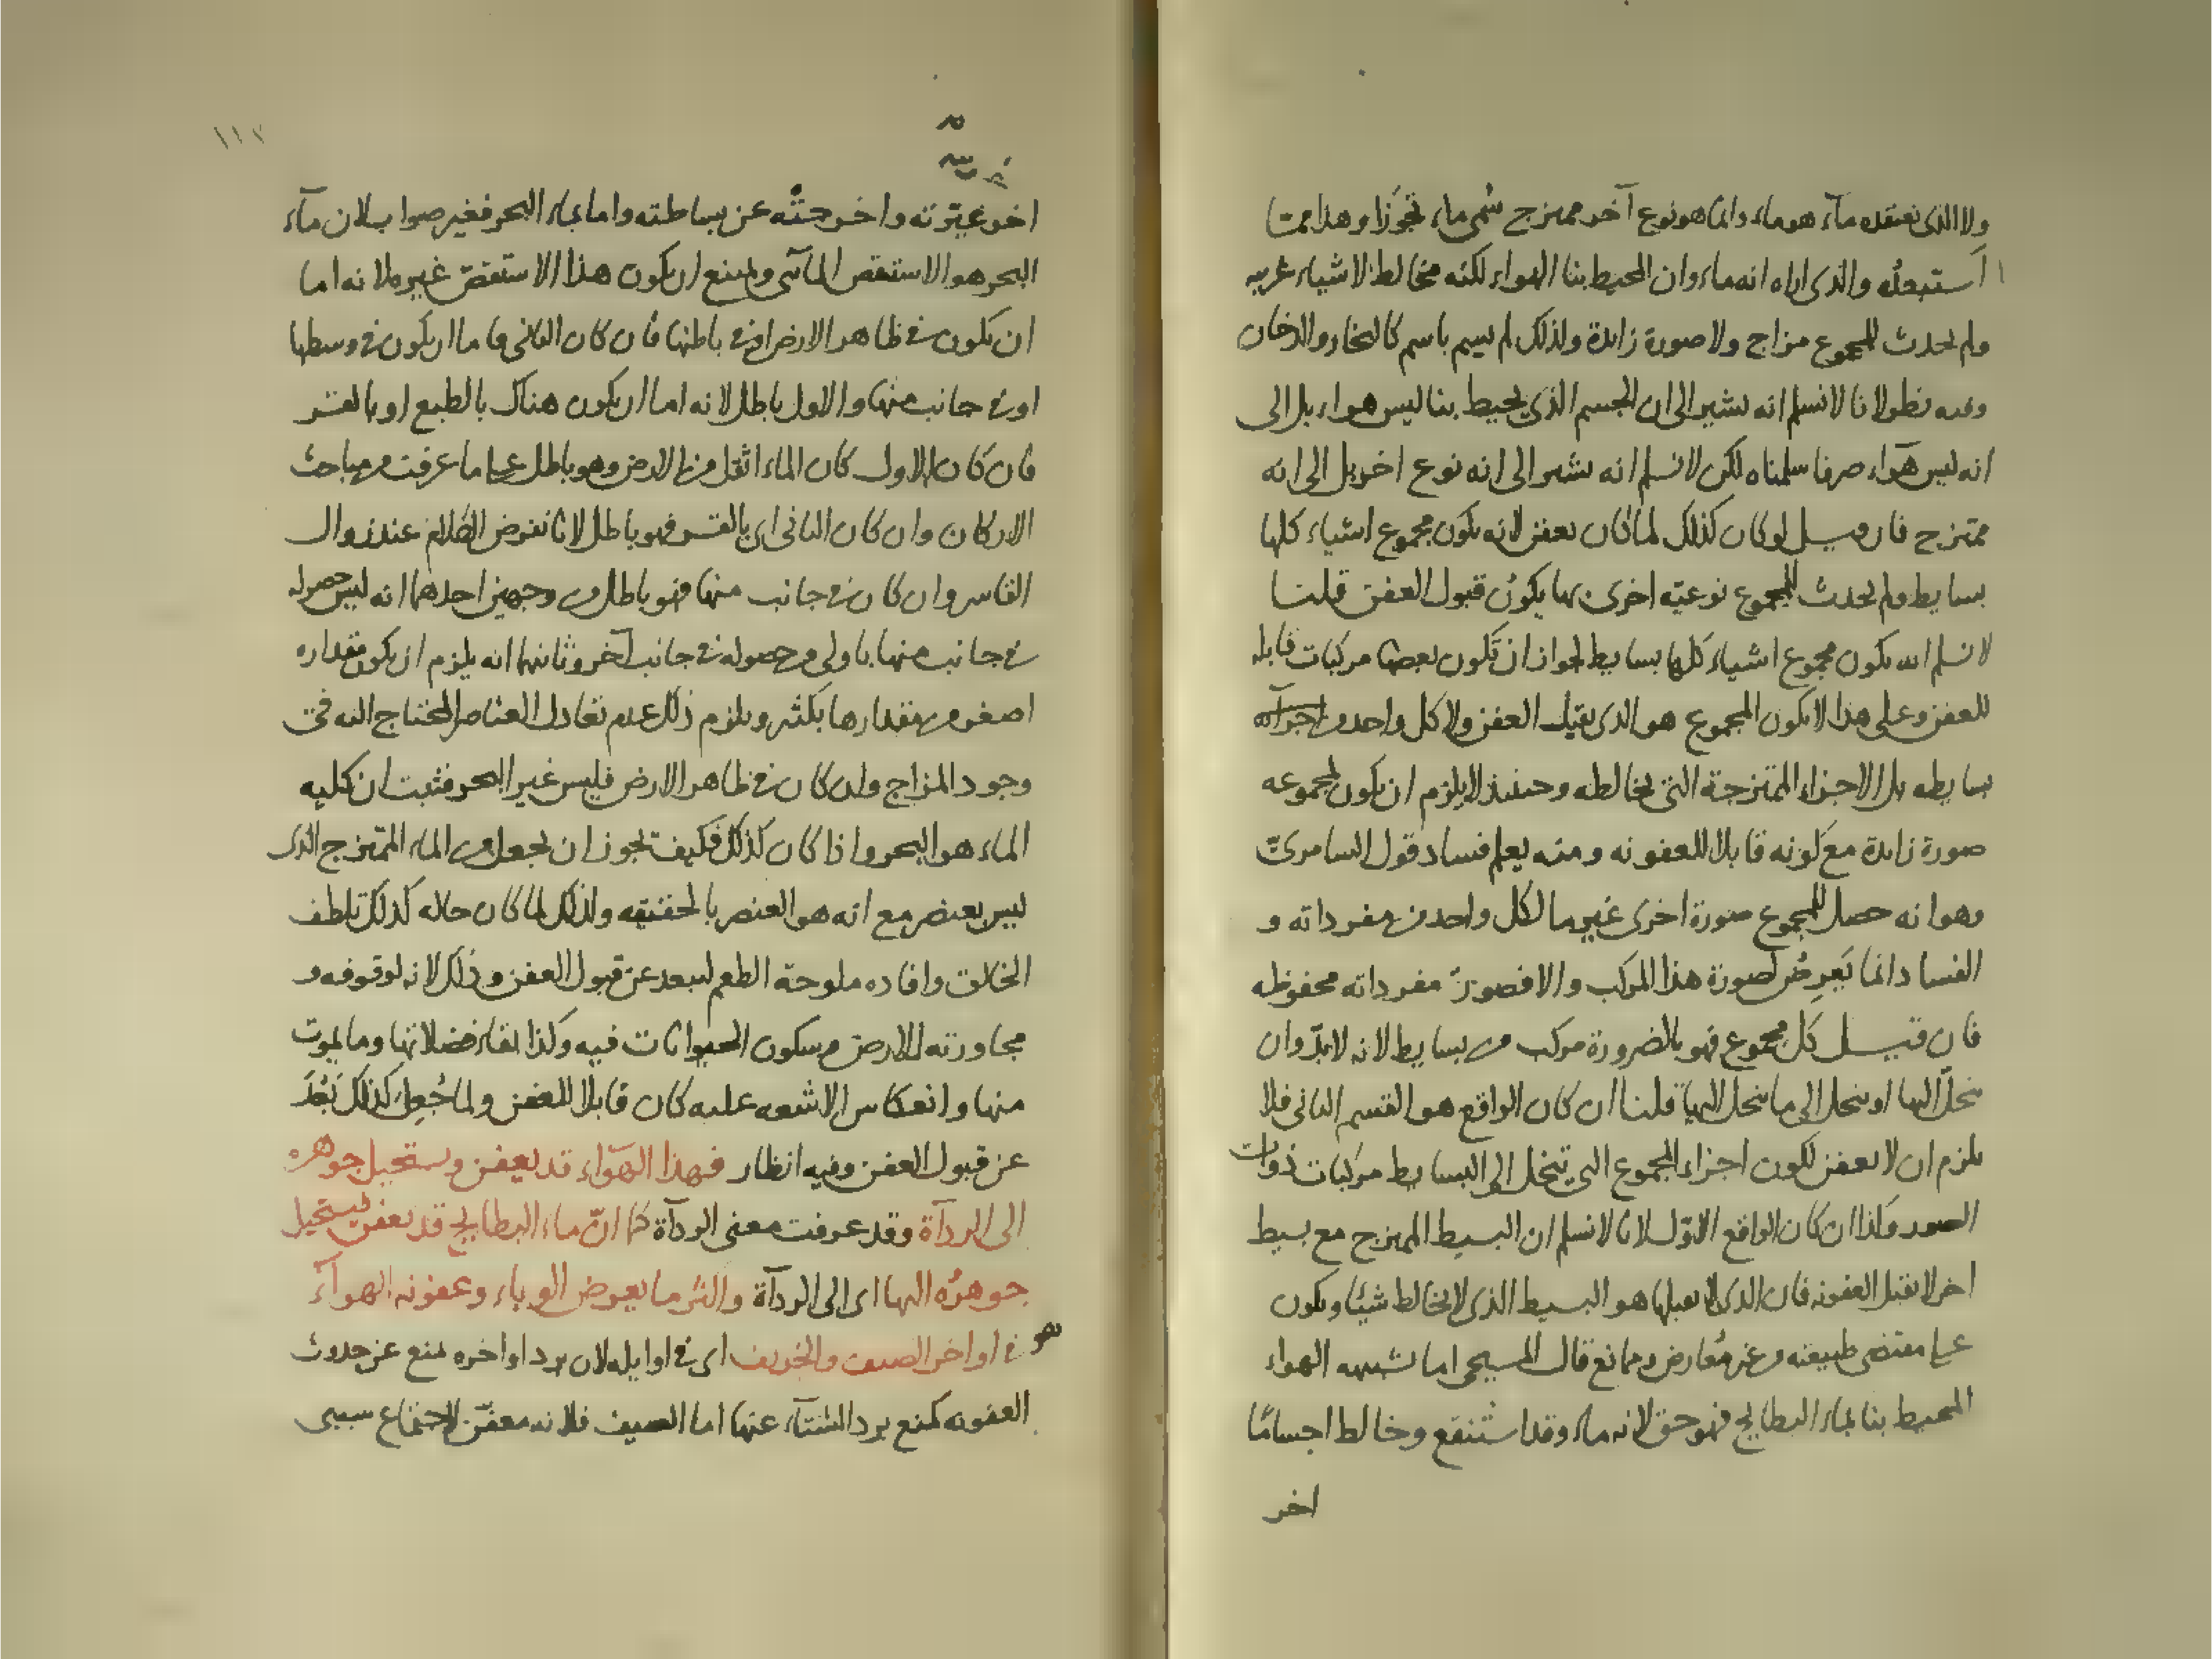 ولا الذى نعتقده مآء هو ماء وانما هو نوع آخر ممتزج سُمى ماء تجوّزا وهذا مما
استبعدُه والذى اراه انه ماء وان المحيط بنا الهواء لكنه مخالط لاشياء غريبه
ولم يحدث للمجموع مزاج ولا صورة زايدة ولذلك لم يسم باسم كالبخار والدخان
وفيه نظر لانا لا نسلم انه يشير الى ان الجسم الذى يحيط بنا ليس هواء بل الى
انه ليس هوآء صرفا سلمناه لكن لا نسلم انه يشير الى انه نوع اخر بل الى انه
ممتزج فان قيل لو كان كذلك لما كان يعفن لانه يكون مجموع اشياء كلها
بسايط ولم يحدث للمجموع نوعيّه اخرى بها يكونُ قبول العفن قلنا
لا نسلم انه يكون مجموع اشياء كلها بسايط لجواز ان تكون بعضها مركبات قابله
للعفن وعلى هذا لا يكون المجموع هو الذى يقبل العفن ولا كل واحد من اجزآئه
بسايطه بل الاجزاء الممتزجة التى تخالطه وحينئذ لا يلزم ان يكون لمجموعه
صورة زايدة مع كونه قابلا للعفونه ومنه يعلم فساد قول السامرىّ
وهو انه حصل للمجموع صورة اخرى غير ما لكل واحد من مفرداته و
الفساد انما يَعرِضُ لصورة هذا المركب والا فصورة مفرداته محفوظه
فان قيل كل مجموع فهو بالضرورة مركب من بسايط لانه لا بدّ وان
ينحلّ اليها او ينحل الى ما ينحل اليها قلنا ان كان الواقع هو القسم الثانى فلا
يلزم ان لا يعفن لكون اجزاء المجموع التى تنحل الى البسايط مركبات ذوات
الصور وكذا ان كان الواقع الاوّل لانا لا نسلم ان البسيط الممتزج مع بسيط
اخر لا يقبل العفونه فان الذى لا يقبلها هو البسيط الذى لا يخالط شيئا ويكون
على مقتضى طبيعته من غير مُعارض وممانع قال المسيحى اما تشبيه الهواء
المحيط بنا بماء البطايح فهو حق لانه ماء وقد استنقع وخالط اجسامًا
اخر
١١٢
اخر غيّرته واخرجتْه عن بساطته واما بماء البحر فغير صواب لان مآء
البحر هو الاستقص المآئى ويمتنع ان يكون هذا الاستقص غيره لانه اما
ان يكون فى ظاهر الارض او فى باطنها فان كان الثانى فاما ان يكون فى وسطها
او فى جانب منها والاول باطل لانه اما ان يكون هناك بالطبع او بالقسر
فان كان الاول كان الماء اثقل من الارض وهو باطل على ما عرفت من مباحث
الاركان وان كان الثانى اى بالقسر فهو باطل لانا نفرض الكلام عند زوال
القاسر وان كان فى جانب منها فهو باطل من وجهين احدهما انه ليس حصوله
فى جانب منها باولى من حصوله فى جانب آخر وثانيها انه يلزم ان يكون مقداره
اصغر من مقدارها بكثير ويلزم ذلك عدم تعادل العناصر المحتاج اليه فى
وجود المزاج وان كان فى ظاهر الارض فليس غير البحر فثبت ان كليه
الماء هو البحر واذا كان كذلك فكيف يجوز ان يجعل من الماء الممتزج الذى
ليس بعنصر مع انه هو العنصر بالحقيقه ولذلك لما كان حاله كذلك تلطف
الخالق وافاده ملوحة الطعم ليبعد عن قبول العفن وذلك لانه لوقوفه و
مجاورته للارض وسكون الحيوانات فيه وكذا بقاء فضلاتها وما يموت
منها وانعكاس الاشعه عليه كان قابلا للعفن ولما جُعِل كذلك بَعُدَ
عن قبول العفن وفيه انظار فهذا الهوآء قد يعفن ويستحيل جوهره
الى الردآة وقد عرفت معنى الردآة كما انّ ماء البطايح قد يعفن فيستحيل
جوهرُه اليها اى الى الردآة واكثر ما يعرض الوباء وعفونه الهوآء
هو فى اواخر الصيف والخريف اى فى اوايله لان برد اواخره يمنع عن حدوث
العفونه كمنع برد الشتآء عنها اما الصيف فلانه معفّن لاجتماع سببى